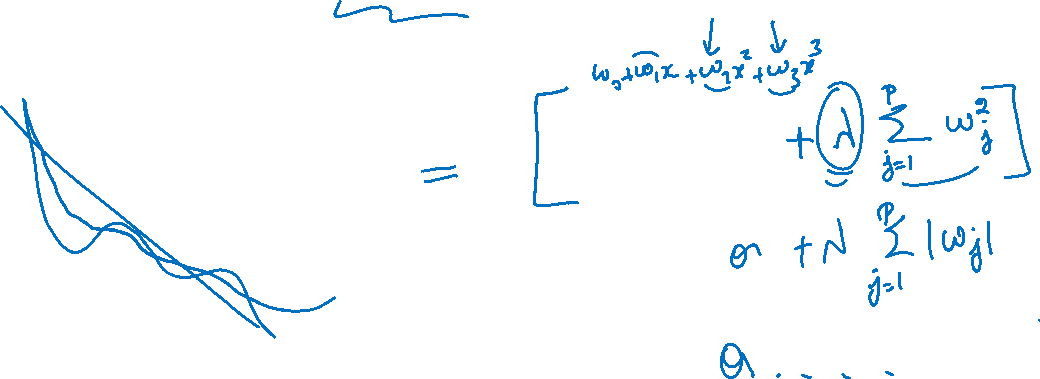 w₀ + w₁x + w₂x² + w₃x³
= [ + λ Σ_{j=1}^{P} w_j² ]
or + λ Σ_{j=1}^{P} |w_j|
or . . . . .